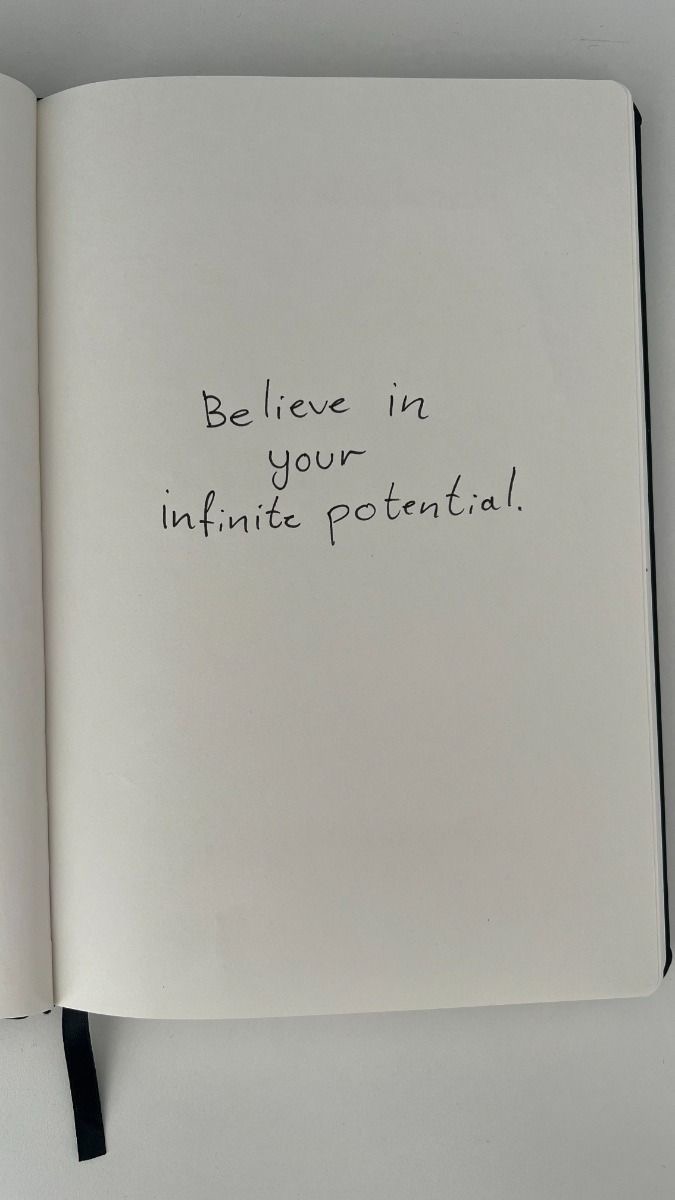 Believe in
your
infinite potential.